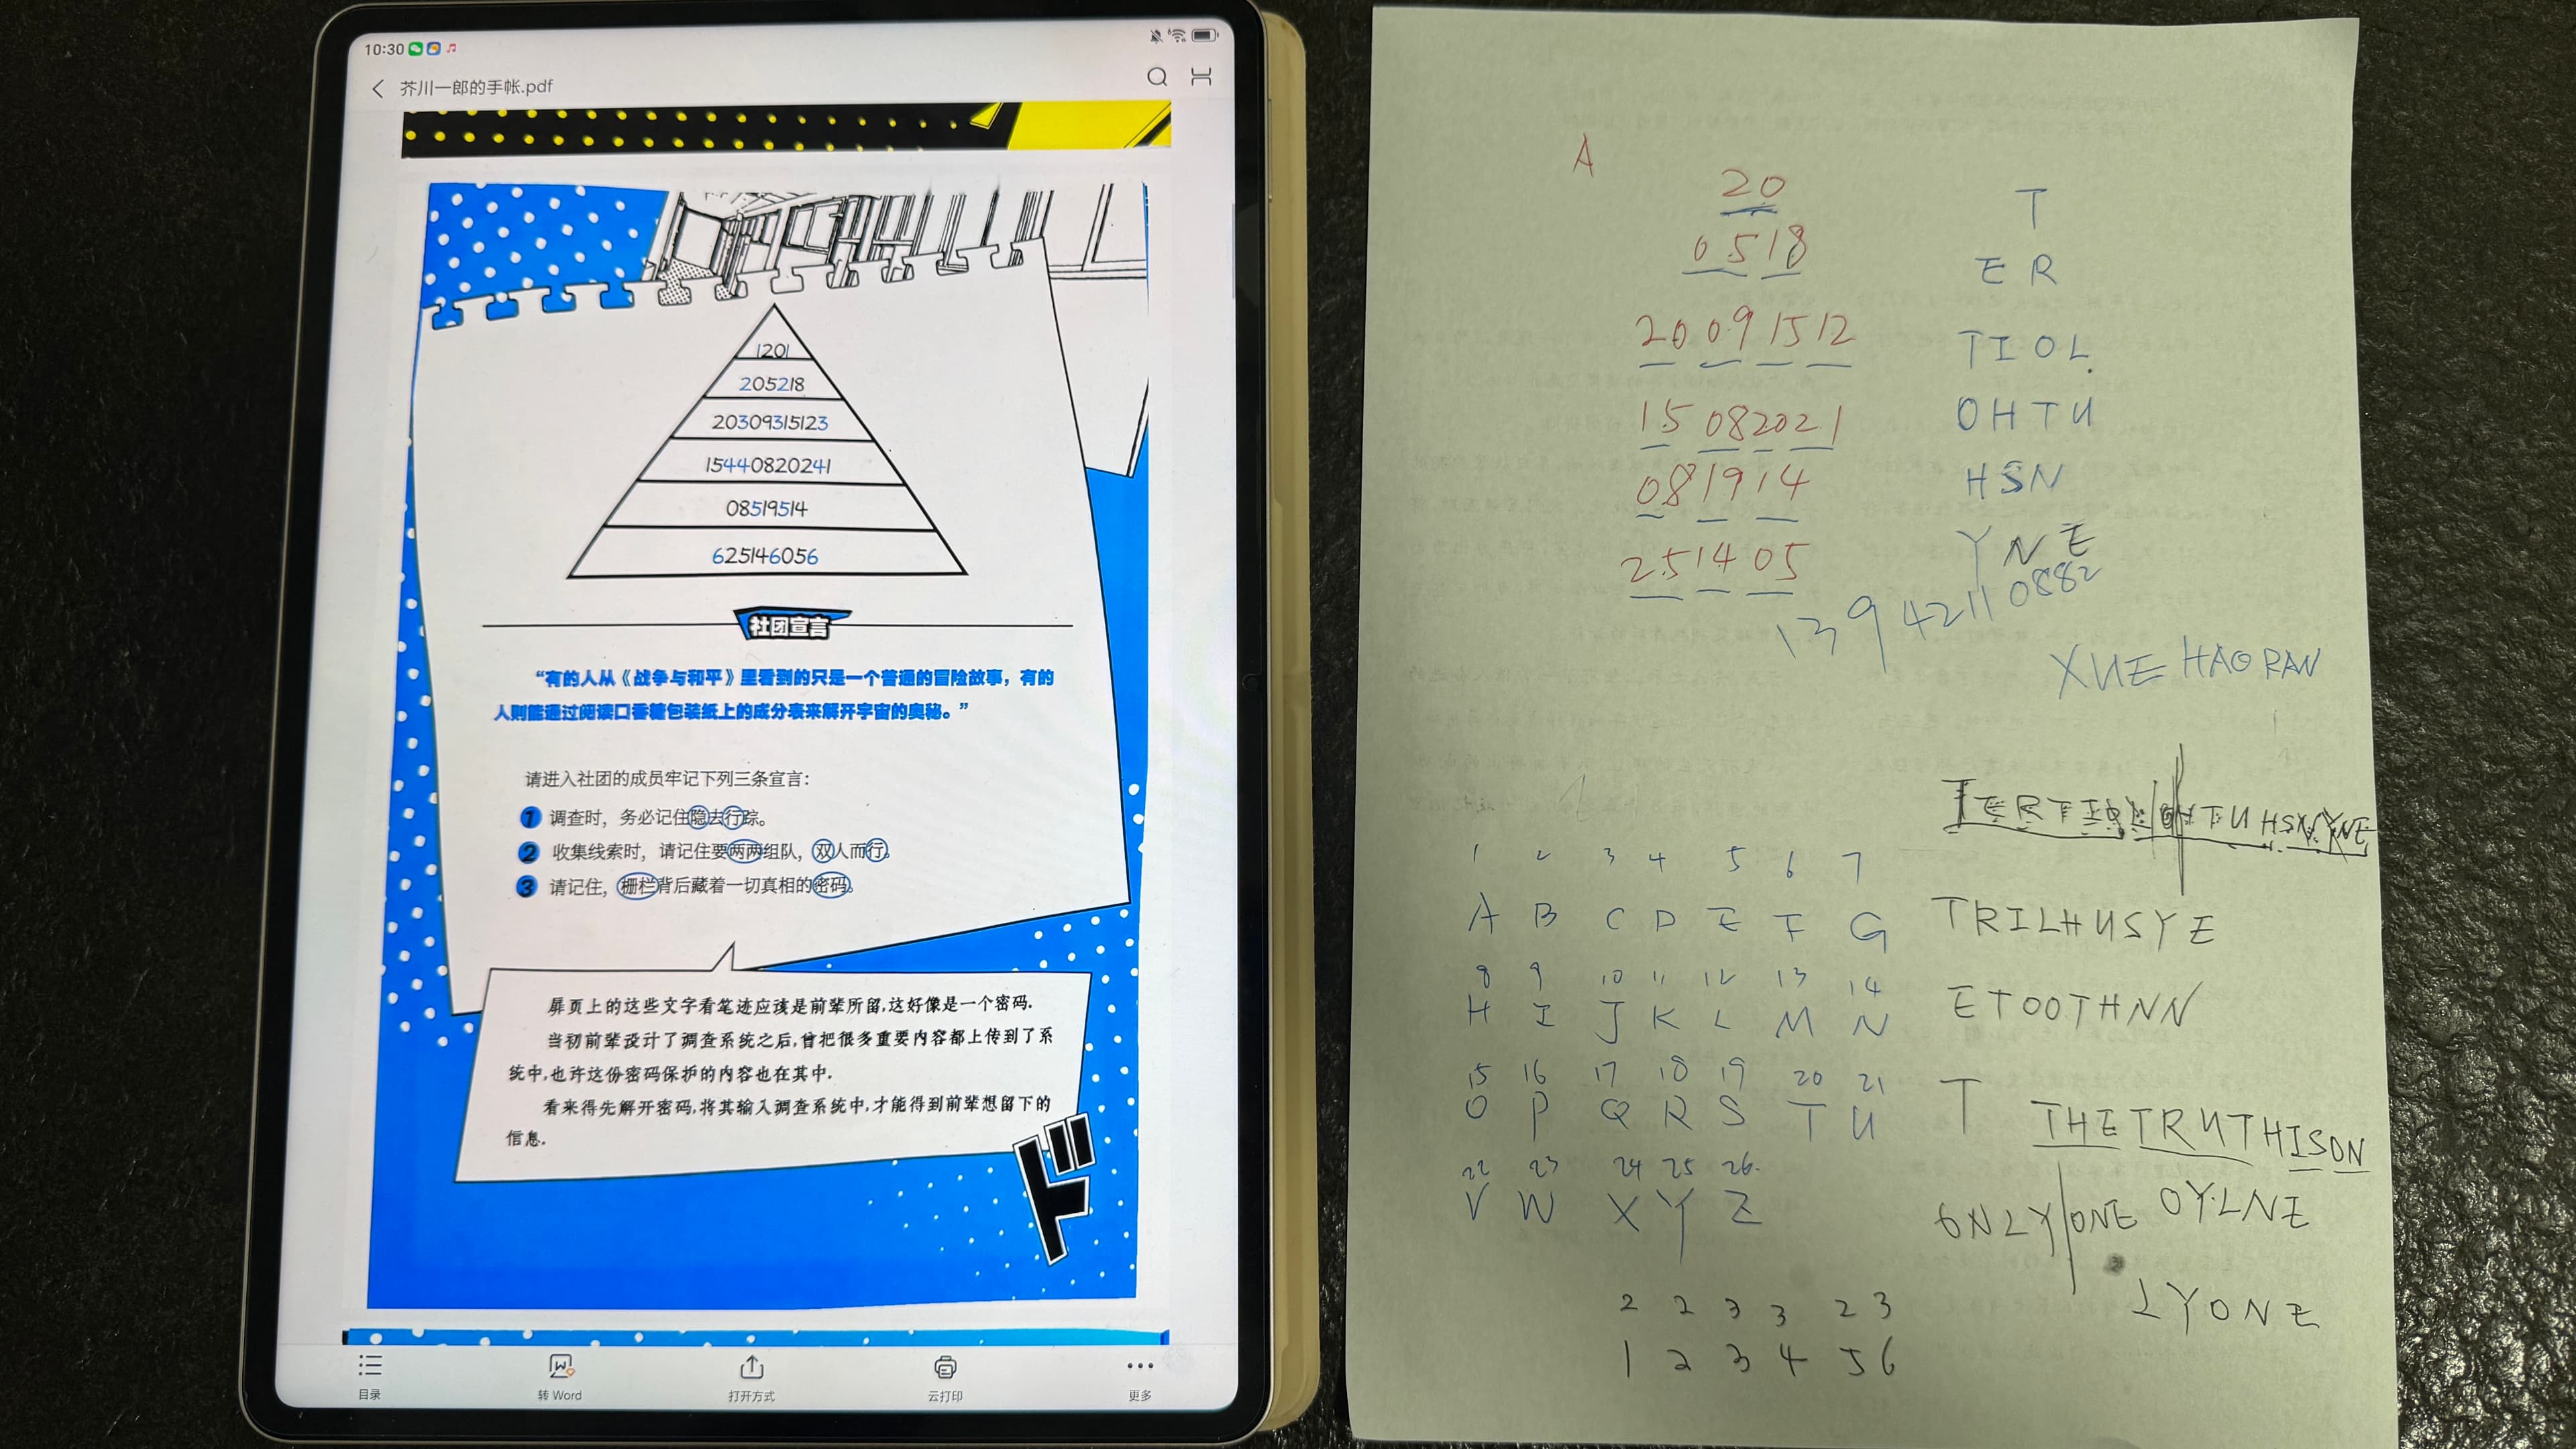 10:30
芥川一郎的手帐.pdf
1201
205218
20309315123
15440820241
08519514
625146056
社团宣言
“有的人从《战争与和平》里看到的只是一个普通的冒险故事，有的
人则能通过阅读口香糖包装纸上的成分表来解开宇宙的奥秘。”
请进入社团的成员牢记下列三条宣言：
1 调查时，务必记住隐去行踪。
2 收集线索时，请记住要两两组队，双人而行。
3 请记住，栅栏背后藏着一切真相的密码。
扉页上的这些文字看笔迹应该是前辈所留,这好像是一个密码.
当初前辈设计了调查系统之后,曾把很多重要内容都上传到了系
统中,也许这份密码保护的内容也在其中.
看来得先解开密码,将其输入调查系统中,才能得到前辈想留下的
信息.
ド
目录
转 Word
打开方式
云打印
更多
A
20 T
0518 ER
20091512 TIOL
15082021 OHTU
081914 HSN
251405 YNE
13942110882
XUE HAO RAN
TERTIOLOHTUHSNYNE
1 2 3 4 5 6 7
A B C D E F G
8 9 10 11 12 13 14
H I J K L M N
15 16 17 18 19 20 21
O P Q R S T U
22 23 24 25 26
V W X Y Z
TRILHUSYE
ETOOTHNN
T THETRUTHISON
ONLY ONE OYLNE
LYONE
2 2 3 3 2 3
1 2 3 4 5 6